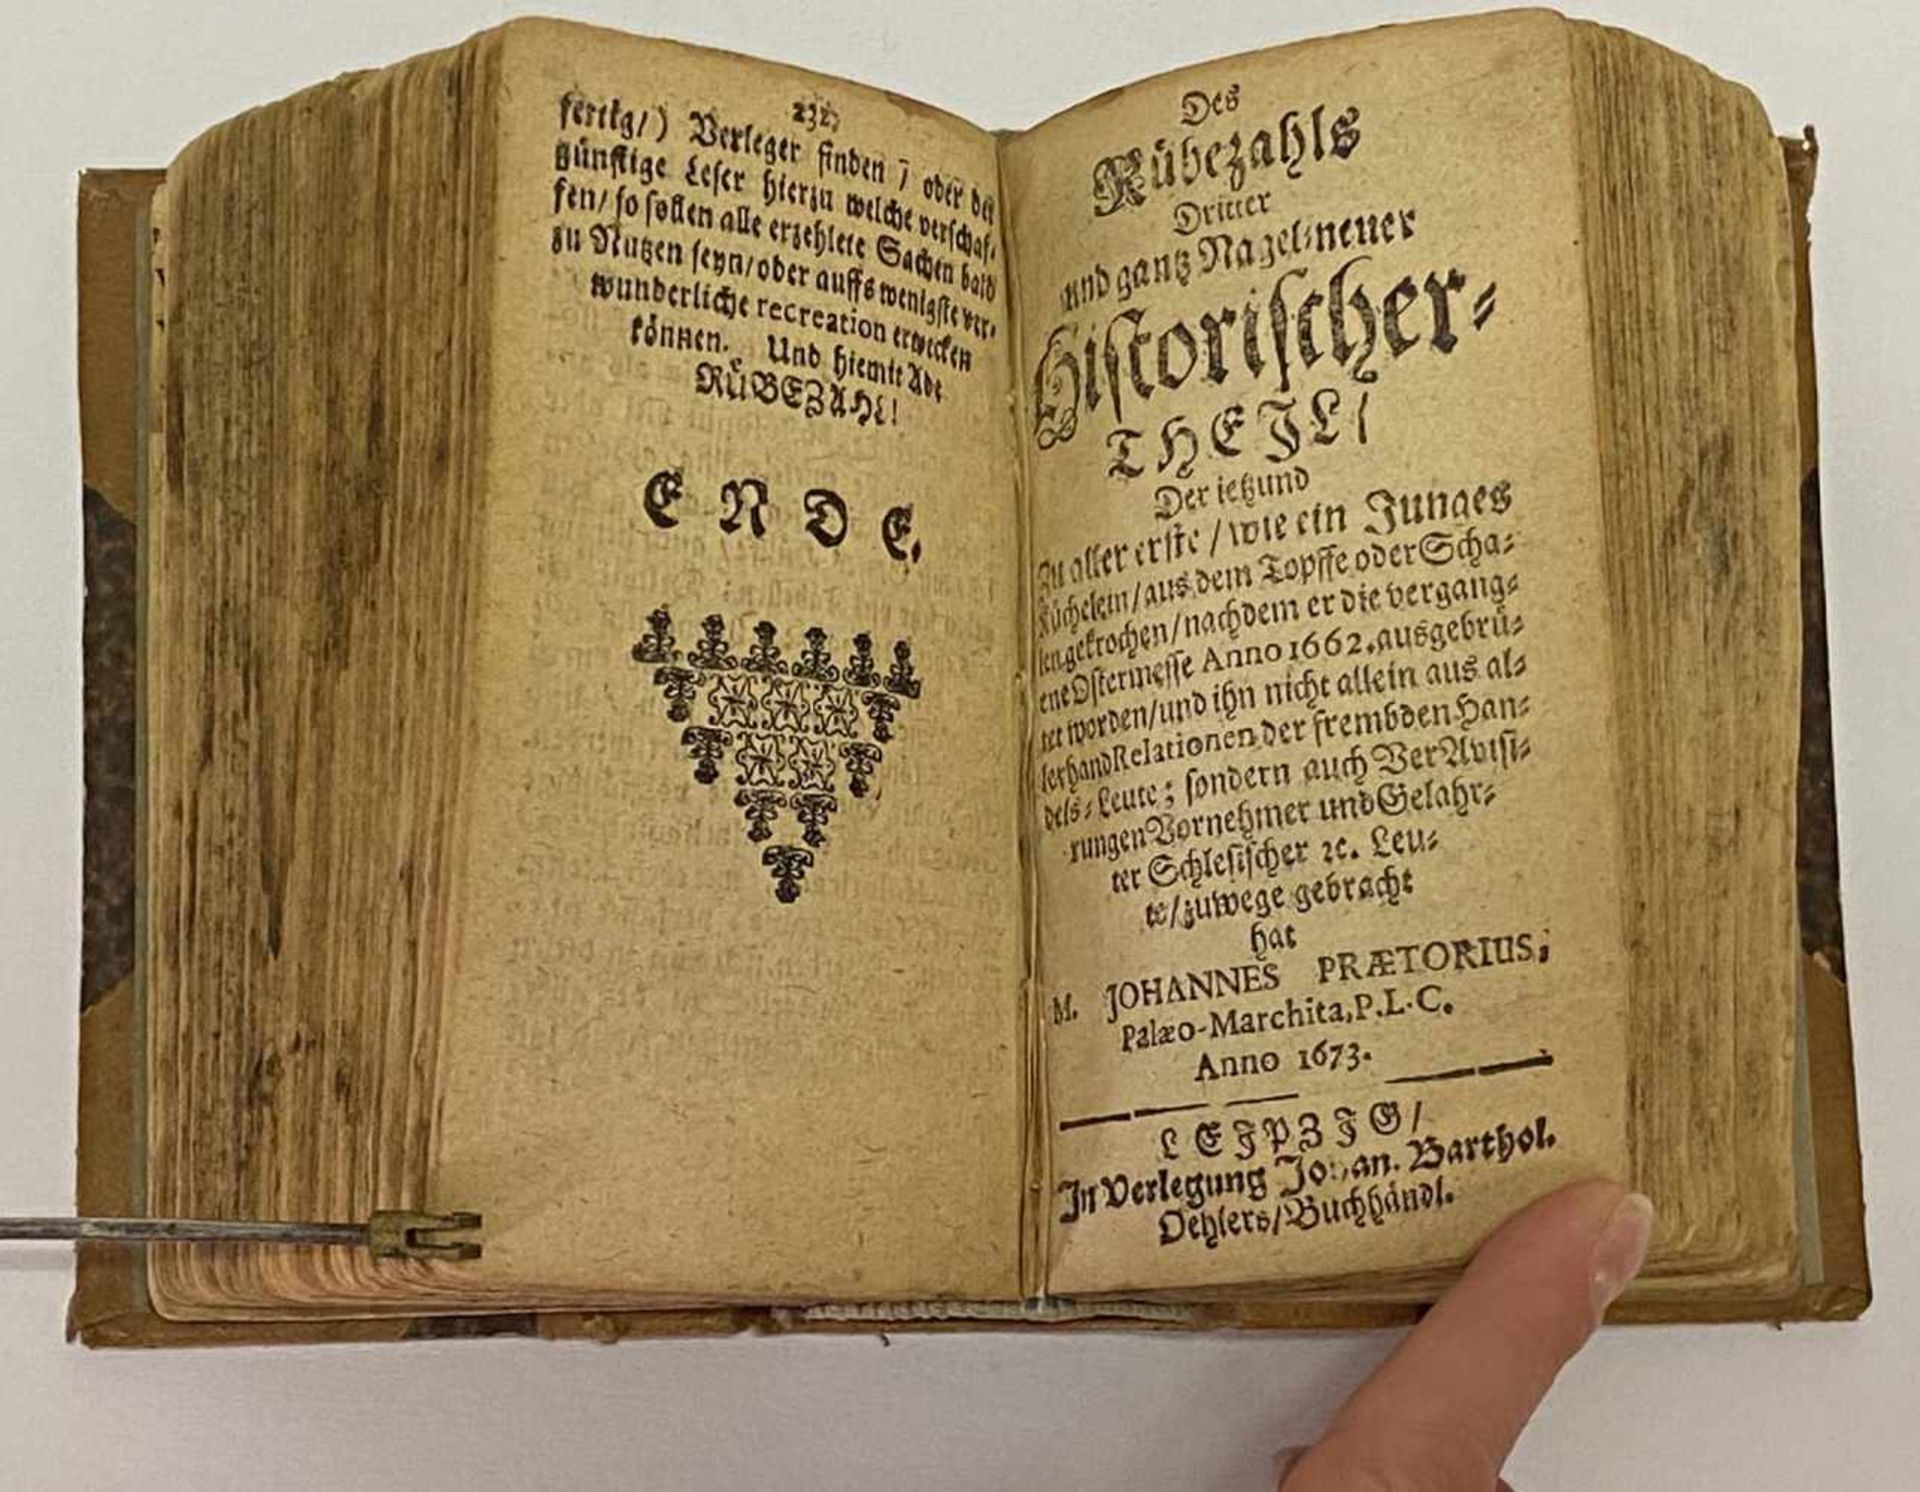 232
fertig/) Verleger finden / oder der
günstige Leser hierzu welche verschaf-
fen/ so sollen alle erzehlete Sachen bald
zu Nutzen seyn/ oder auffs wenigste ver-
wunderliche recreation erwecken
können. Und hiemit Ade
RÜBEZAHL!
ENDE.
Des
Rübezahls
Dritter
und gantz Nagel-neuer
Historischer-
THEIL/
Der ietzund
Zu aller erste / wie ein Junges
Küchelein/ aus dem Topffe oder Scha-
len gekrochen/ nachdem er die vergang-
ene Ostermesse Anno 1662. ausgebrü-
tet worden/ und ihn nicht allein aus al-
lerhand Relationen der frembden Han-
dels-Leute; sondern auch VerAvisi-
rungen Vornehmer und Gelahr-
ter Schlesischer ꝛc. Leu-
te/ zuwege gebracht
hat
M. JOHANNES PRÆTORIUS,
Palæo-Marchita, P.L.C.
Anno 1673.
LEIPZIG/
In Verlegung Johan. Barthol.
Oehlers/ Buchhändl.